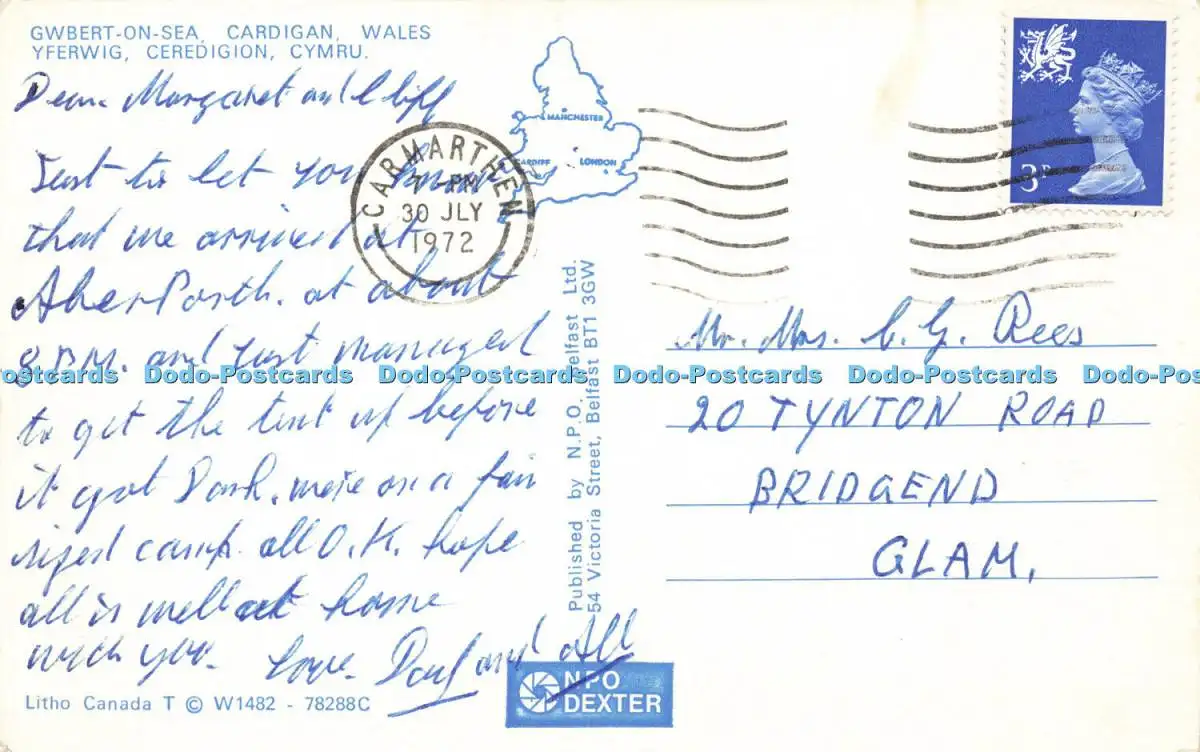 GWBERT-ON-SEA, CARDIGAN, WALES
YFERWIG, CEREDIGION, CYMRU.
Dear Margaret and Cliff
Just to let you know
that we arrived at
AberPorth. at about
8 P.M. and Just managed
to get the tent up before
it got Dark. we're on a fair
sized camp. all O.K. hope
all is well at home
with you. Love. and All
MANCHESTER
CARDIFF
LONDON
CARMARTHEN
7 - PM
30 JLY
1972
3P
Published by N.P.O. Belfast Ltd.
54 Victoria Street, Belfast BT1 3GW
Mr. Mrs. C. G. Rees
20 TYNTON ROAD
BRIDGEND
GLAM,
Dodo-Postcards Dodo-Postcards Dodo-Postcards Dodo-Postcards Dodo-Postcards
Litho Canada T © W1482 - 78288C
NPO
DEXTER